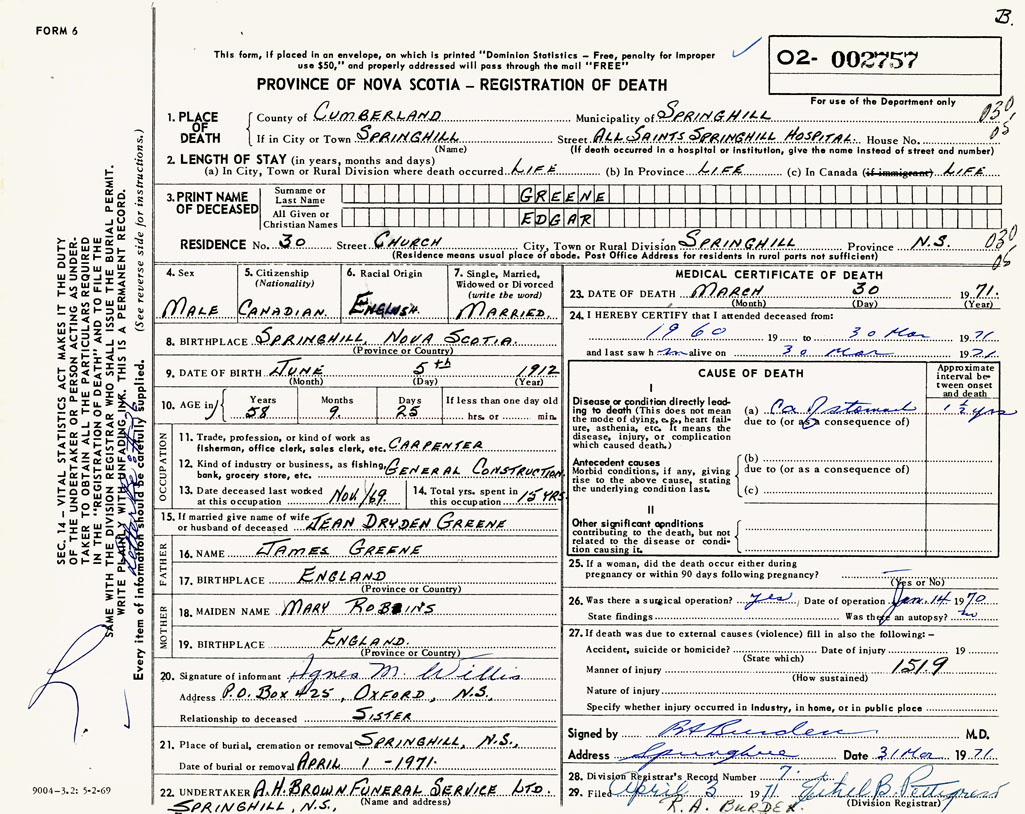 B.
FORM 6
This form, if placed in an envelope, on which is printed "Dominion Statistics – Free, penalty for improper
use $50," and properly addressed will pass through the mail "FREE"
O2- 002757
PROVINCE OF NOVA SCOTIA – REGISTRATION OF DEATH
For use of the Department only
1. PLACE OF DEATH
County of CUMBERLAND Municipality of SPRINGHILL 030
If in City or Town SPRINGHILL Street ALL SAINTS SPRINGHILL HOSPITAL. House No. 05
(Name) (If death occurred in a hospital or institution, give the name instead of street and number)
2. LENGTH OF STAY (in years, months and days)
(a) In City, Town or Rural Division where death occurred LIFE (b) In Province LIFE (c) In Canada (if immigrant) LIFE
3. PRINT NAME OF DECEASED
Surname or Last Name GREENE
All Given or Christian Names EDGAR
RESIDENCE No. 30 Street CHURCH City, Town or Rural Division SPRINGHILL Province N.S. 030
(Residence means usual place of abode. Post Office Address for residents in rural parts not sufficient) 05
4. Sex
MALE
5. Citizenship
(Nationality)
CANADIAN.
6. Racial Origin
ENGLISH.
7. Single, Married,
Widowed or Divorced
(write the word)
MARRIED.
8. BIRTHPLACE SPRINGHILL, NOVA SCOTIA.
(Province or Country)
9. DATE OF BIRTH JUNE 5th 1912
(Month) (Day) (Year)
10. AGE in
Years Months Days If less than one day old
58 9. 25 hrs. or min.
OCCUPATION
11. Trade, profession, or kind of work as
fisherman, office clerk, sales clerk, etc. CARPENTER
12. Kind of industry or business, as fishing,
bank, grocery store, etc. GENERAL CONSTRUCTION.
13. Date deceased last worked
at this occupation NOV/69.
14. Total yrs. spent in
this occupation 15 YRS
15. If married give name of wife
or husband of deceased JEAN DRYDEN GREENE
FATHER
16. NAME JAMES GREENE
17. BIRTHPLACE ENGLAND
(Province or Country)
MOTHER
18. MAIDEN NAME MARY ROBBINS
19. BIRTHPLACE ENGLAND.
(Province or Country)
20. Signature of informant Agnes M. Willis
Address P.O. BOX 425, OXFORD, N.S.
Relationship to deceased SISTER
21. Place of burial, cremation or removal SPRINGHILL, N.S.,
Date of burial or removal APRIL 1 -1971.
22. UNDERTAKER A.H. BROWN FUNERAL SERVICE LTD.
(Name and address)
SPRINGHILL, N.S.
MEDICAL CERTIFICATE OF DEATH
23. DATE OF DEATH MARCH 30 1971.
(Month) (Day) (Year)
24. I HEREBY CERTIFY that I attended deceased from:
1960 19 to 30 Mar 1971
and last saw him alive on 30 Mar 1971
CAUSE OF DEATH
Approximate interval between onset and death
I
Disease or condition directly leading to death (This does not mean the mode of dying, e.g., heart failure, asthenia, etc. It means the disease, injury, or complication which caused death.)
(a) Ca of stomach 1½ yrs
due to (or as a consequence of)
Antecedent causes
Morbid conditions, if any, giving rise to the above cause, stating the underlying condition last.
(b)
due to (or as a consequence of)
(c)
II
Other significant conditions
contributing to the death, but not related to the disease or condition causing it.
25. If a woman, did the death occur either during
pregnancy or within 90 days following pregnancy?
(Yes or No)
26. Was there a surgical operation? yes Date of operation Jan. 14 1970
State findings Was there an autopsy? no
27. If death was due to external causes (violence) fill in also the following: –
Accident, suicide or homicide? Date of injury 19
(State which)
Manner of injury 151.9
(How sustained)
Nature of injury
Specify whether injury occurred in industry, in home, or in public place
Signed by RA Burden M.D.
Address Springhill Date 31 Mar 1971
28. Division Registrar's Record Number 7.
29. Filed April 3 1971 Ethel B. Pettigrew
(Division Registrar)
R. A. BURDEN.
SEC. 14 – VITAL STATISTICS ACT MAKES IT THE DUTY
OF THE UNDERTAKER OR PERSON ACTING AS UNDER-
TAKER TO OBTAIN ALL THE PARTICULARS REQUIRED
IN THE "REGISTRATION OF DEATH" AND TO FILE THE
SAME WITH THE DIVISION REGISTRAR WHO SHALL ISSUE THE BURIAL PERMIT.
WRITE PLAINLY WITH UNFADING INK. THIS IS A PERMANENT RECORD.
Every item of information should be carefully supplied. (See reverse side for instructions.)
9004-3.2: 5-2-69